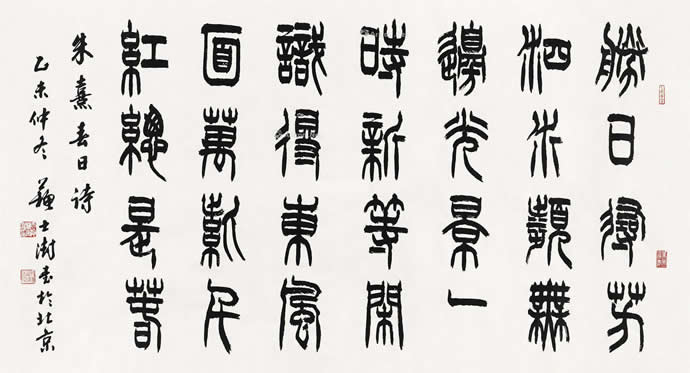 勝日尋芳
泗水濱無
邊光景一
時新等閑
識得東風
面萬紫千
紅總是春
朱熹春日诗
乙未仲冬蘇士澍书於北京